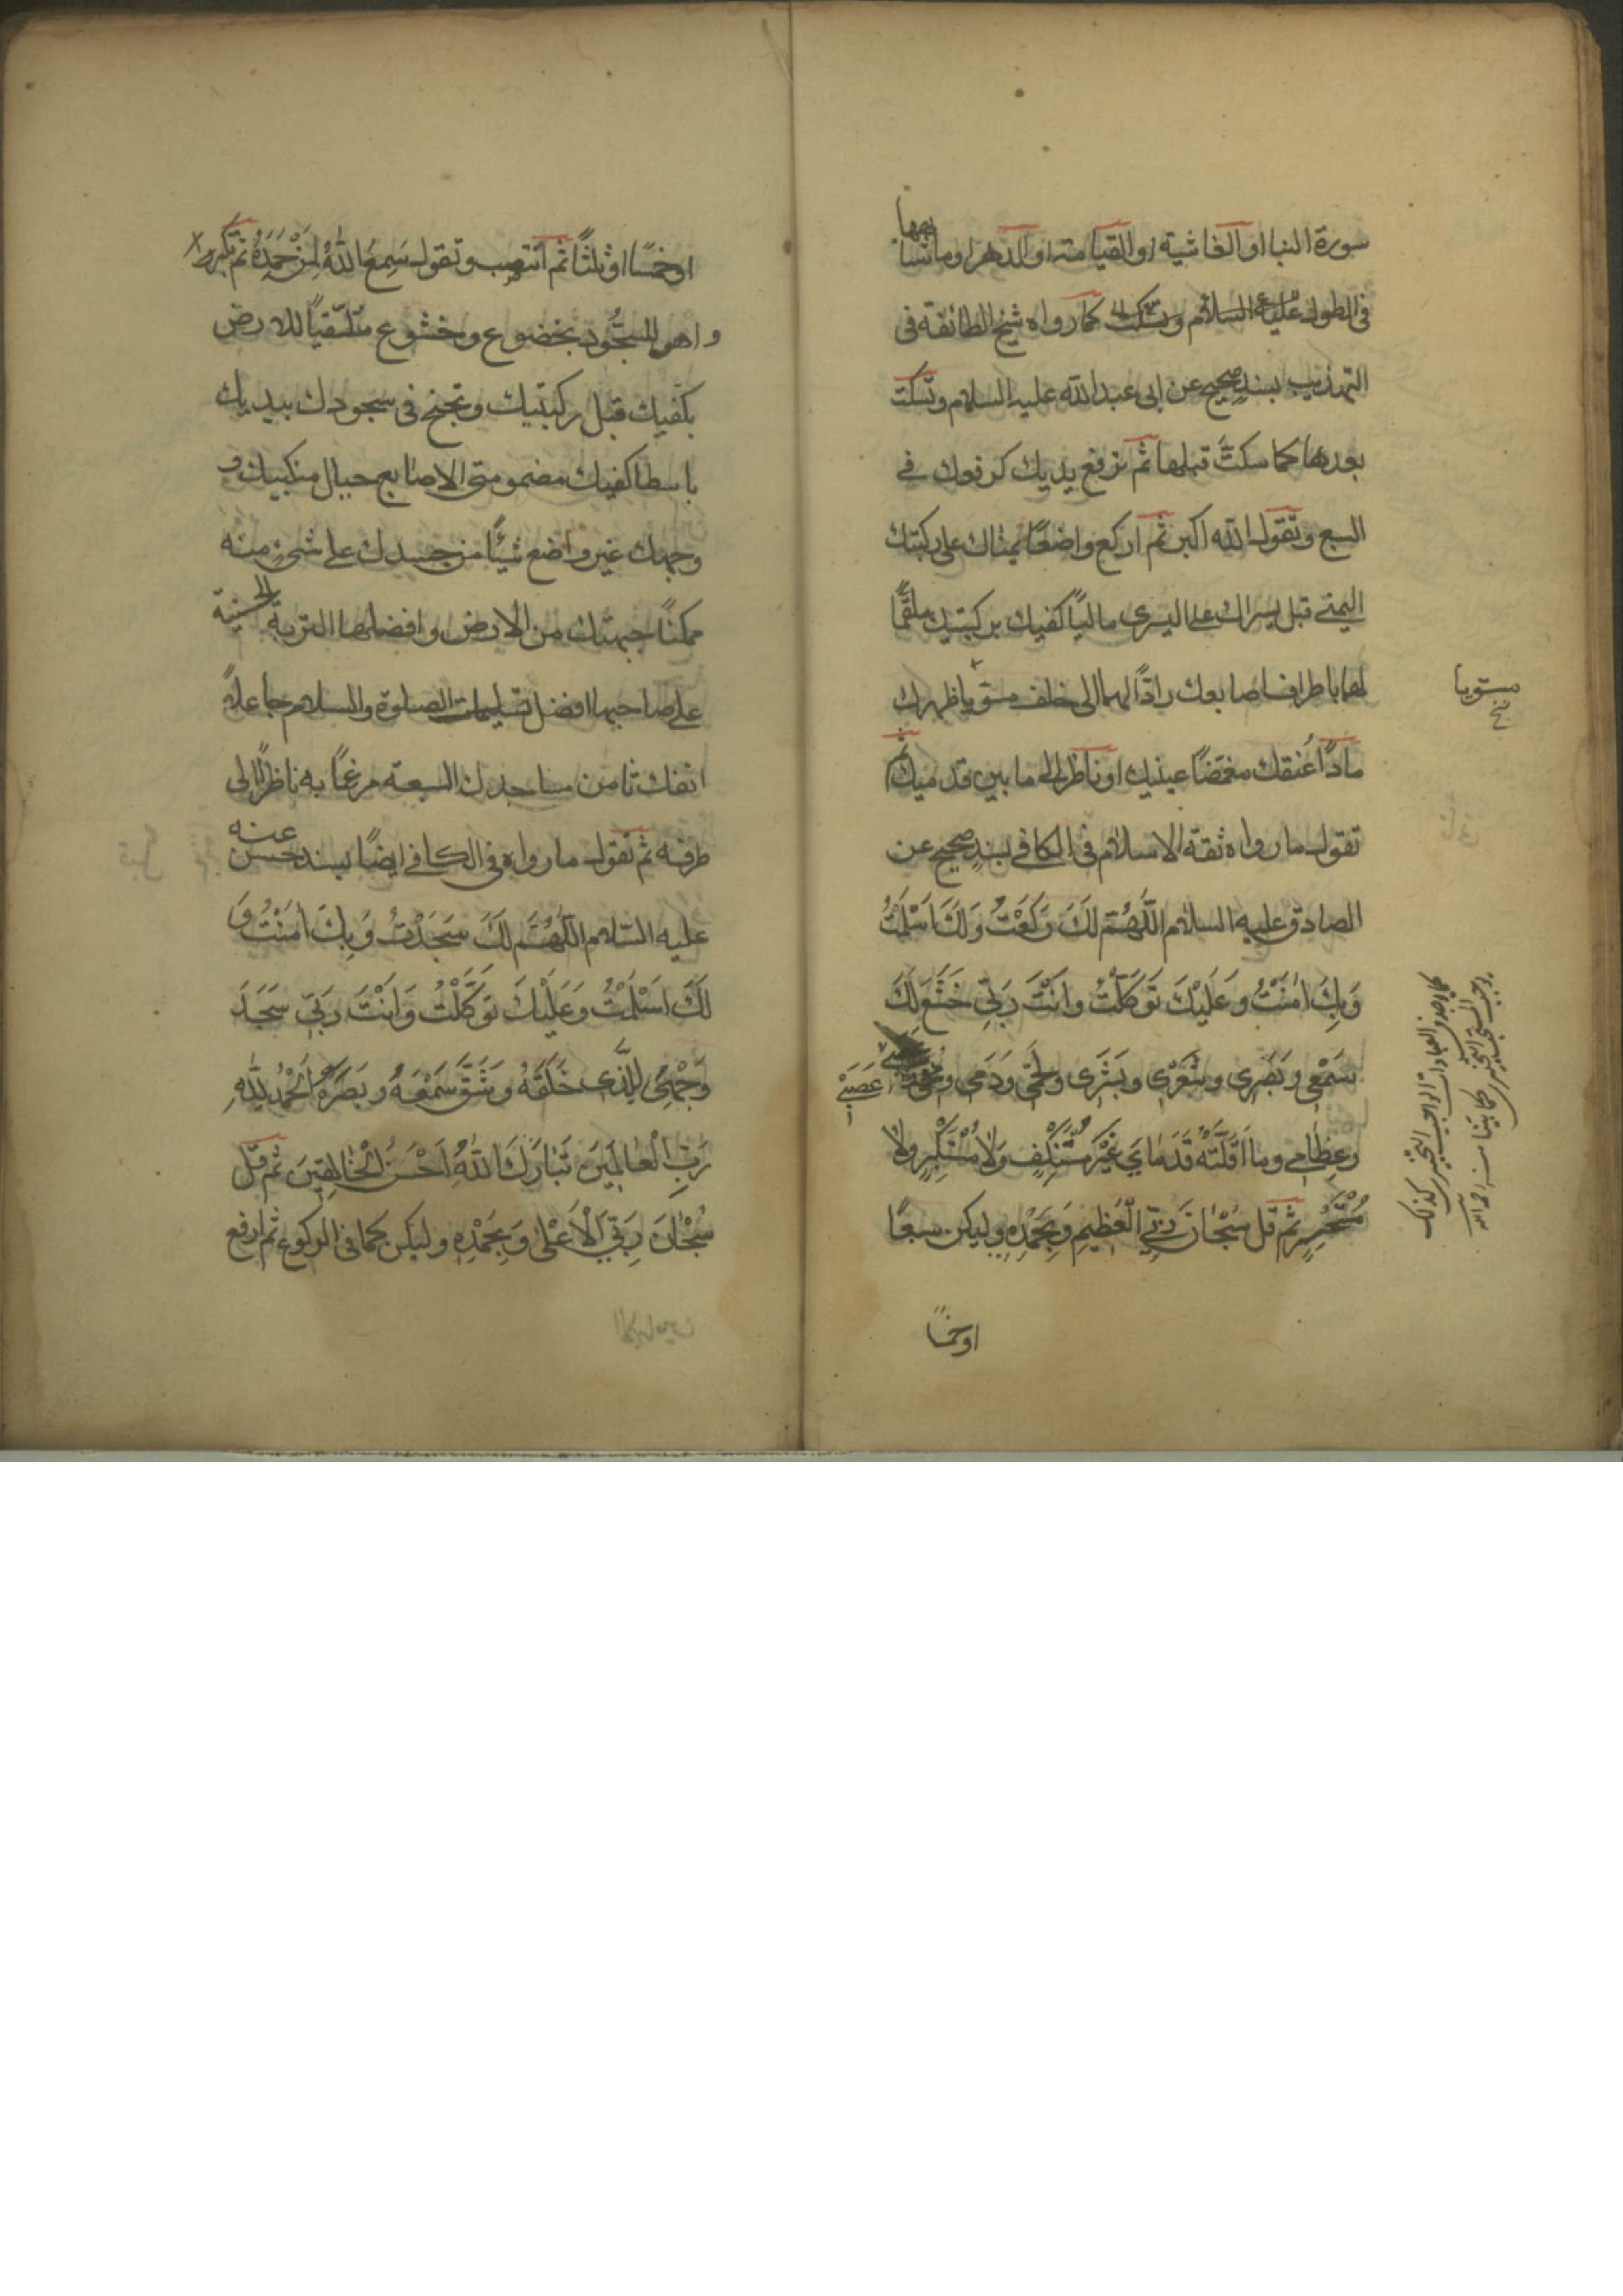 سورة النبا او الغاشية او القيامة او الدهر او ما شابهها
فى الطول عليه السلام وتسكت كما رواه شيخ الطائفة فى
التهذيب بسند صحيح عن ابى عبد الله عليه السلام وتسكت
بعدها كما سكتَّ قبلها ثم ترفع يديك كرفعك فى
السبع وتقول الله اكبر ثم اركع واضعًا يمناك على ركبتك
اليمنى قبل يسراك على اليسرى ماليًا كفيك بركبتيك ملقمًا
لهما باطراف اصابعك رادًا لهما الى خلف مستويا ظهرك
مادًا عُنقك مغمضًا عينيك او ناظرا الى ما بين قدميك ثم
تقول ما رواه ثقة الاسلام فى الكافى بسندٍ صحيح عن
الصادق عليه السلام اللّهُمَّ لَكَ رَكَعْتُ وَلَكَ اَسْلَمْتُ
وَبِكَ اٰمَنْتُ وَعَلَيْكَ تَوَكَّلْتُ وانْتَ رَبّى خَشَعَ لَكَ
سَمْعى وَبَصَرى وشَعْرى وبَشَرى ولَحْمى وَدَمى ومُخّى
عَصَبى
وعِظامى وما اَقَلَّتْهُ قَدَماىَ غَيْرَ مُسْتَنْكِفٍ وَلا مُسْتَكْبِرٍ ولا
مُسْتَحْسِرٍ ثم قل سُبْحانَ رَبّىَ الْعَظيمِ وَبِحَمْدِهِ وليكن سبعًا
او خمسًا
مستويا
نخ
او خمسًا او ثلثًا ثم انتصب وتقول سَمِعَ اللهُ لِمَنْ حَمِدَهُ ثم تكبر
واهو للسجُود بخضوع وخشوع متلقيًا للارض
بكفيك قبل ركبتيك وتجنح فى سجودك بيديك
باسطا كفيك مضمومتى الاصابع حيال منكبيك و
وجهك غير واضع شيئًا من جسدك على شىءٍ منه
ممكنًا جبهتك من الارض وافضلها التربة الحسينية
على صاحبها افضل تسليمات الصلوة والسلام جاعلاً
انفك ثامن مساجدك السبعة مرغمًا به ناظرًا الى
طرفه ثم تقول ما رواه فى الكافى ايضًا بسند حسن عنه
عليه السّلام اللّهُمَّ لَكَ سَجَدْتُ وَبِكَ اٰمَنْتُ وَ
لَكَ اَسْلَمْتُ وَعَلَيْكَ تَوَكَّلْتُ وَانْتَ رَبّى سَجَدَ
وَجْهِىَ لِلَّذى خَلَقَهُ وشَقَّ سَمْعَهُ وبَصَرَهُ اَلْحَمْدُ لِلّٰهِ
رَبِّ الْعالَمينَ تَبارَكَ اللهُ اَحْسَنُ الْخالِقينَ ثم قل
سُبْحانَ رَبّىَ الْاَعْلى وَبِحَمْدِهِ وليكن كما فى الركوع ثم ارفع